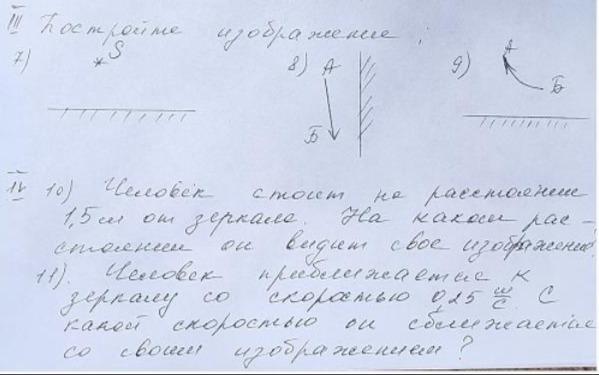 III Постройте изображение:
7) S 8) А Б 9) А Б
IV 10) Человек стоит на расстоянии
1,5 м от зеркала. На каком рас-
стоянии он видит свое изображение.
11). Человек приближается к
зеркалу со скоростью 0,25 м/с. С
какой скоростью он сближается
со своим изображением?